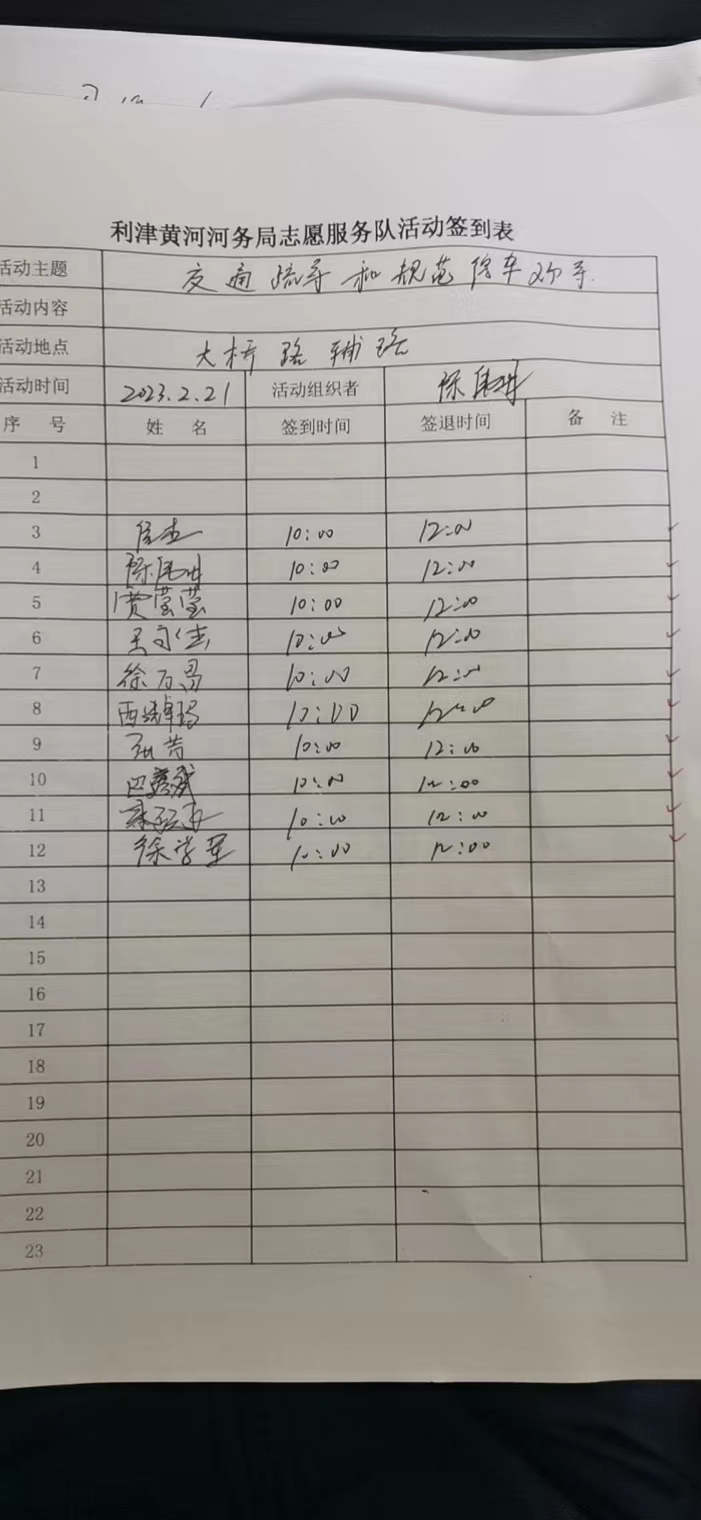 利津黄河河务局志愿服务队活动签到表
活动主题 交通疏导和规范停车劝导
活动内容
活动地点 大桥路辅路
活动时间 2023.2.21 活动组织者 陈
序 号 姓 名 签到时间 签退时间 备 注
1
2
3 10:00 12:00
4 陈 10:00 12:00
5 贾莹莹 10:00 12:00
6 10:00 12:00
7 徐万昌 10:00 12:00
8 10:00 12:00
9 10:00 12:00
10 10:00 12:00
11 10:00 12:00
12 徐学军 10:00 12:00
13
14
15
16
17
18
19
20
21
22
23